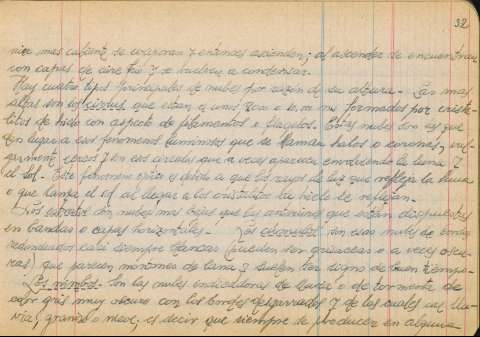 32
mas caliente se evaporan y entonces ascienden; al ascender se encuentran
con capas de aire frio y se vuelven a condensar.
Hay cuatro tipos principales de nubes por razón de su altura. Las mas
altas son los cirrus que estan a unos 7.000 o 10.000 ms formados por crista-
litos de hielo con aspecto de filamentos o flequillos. Estas nubes son las que
dan lugar a esos fenomenos luminosos que se llaman halos o coronas, vul-
garmente cercos y son esos circulos que a veces aparecen envolviendo la luna y
el sol. Este fenomeno optico es debido a que los rayos de luz que refleja la luna
o que lanza el sol al llegar a los cristalitos de hielo se reflejan.
Los estratos son nubes mas bajas que las anteriores que estan dispuestas
en bandas o capas horizontales. Los son esas nubes de bordes
redondeados casi siempre blancas (pueden ser grisaceas o a veces oscu-
ras) que parecen montones de lana y suelen ser signo de buen tiempo.
Los nimbos. Son las nubes indicadoras de lluvia o de tormenta de
color gris muy oscuro con los bordes desgarrados y de las cuales cae llu-
via, granizo o nieve, es decir que siempre se producen en alguna